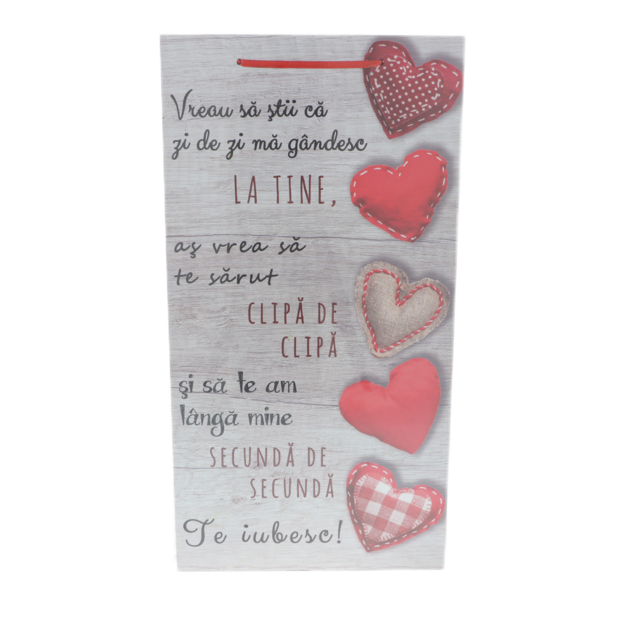 Vreau să știi că
zi de zi mă gândesc
LA TINE,
aș vrea să
te sărut
CLIPĂ DE
CLIPĂ
și să te am
lângă mine
SECUNDĂ DE
SECUNDĂ
Te iubesc!